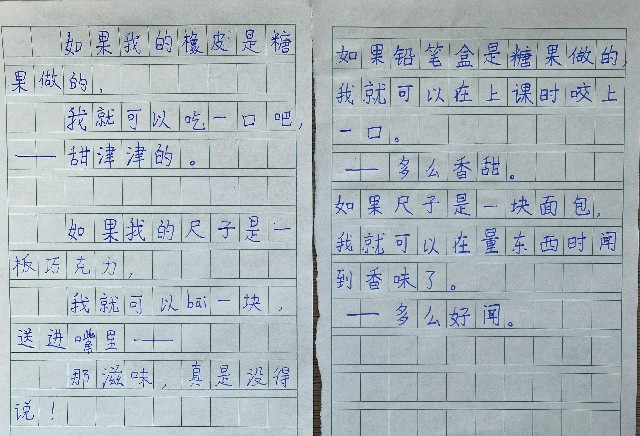 如果我的橡皮是糖
果做的，
我就可以吃一口吧，
——甜津津的。
如果我的尺子是一
板巧克力，
我就可以bāi一块，
送进嘴里——
那滋味，真是没得
说！
如果铅笔盒是糖果做的，
我就可以在上课时咬上
一口。
——多么香甜。
如果尺子是一块面包，
我就可以在量东西时闻
到香味了。
——多么好闻。